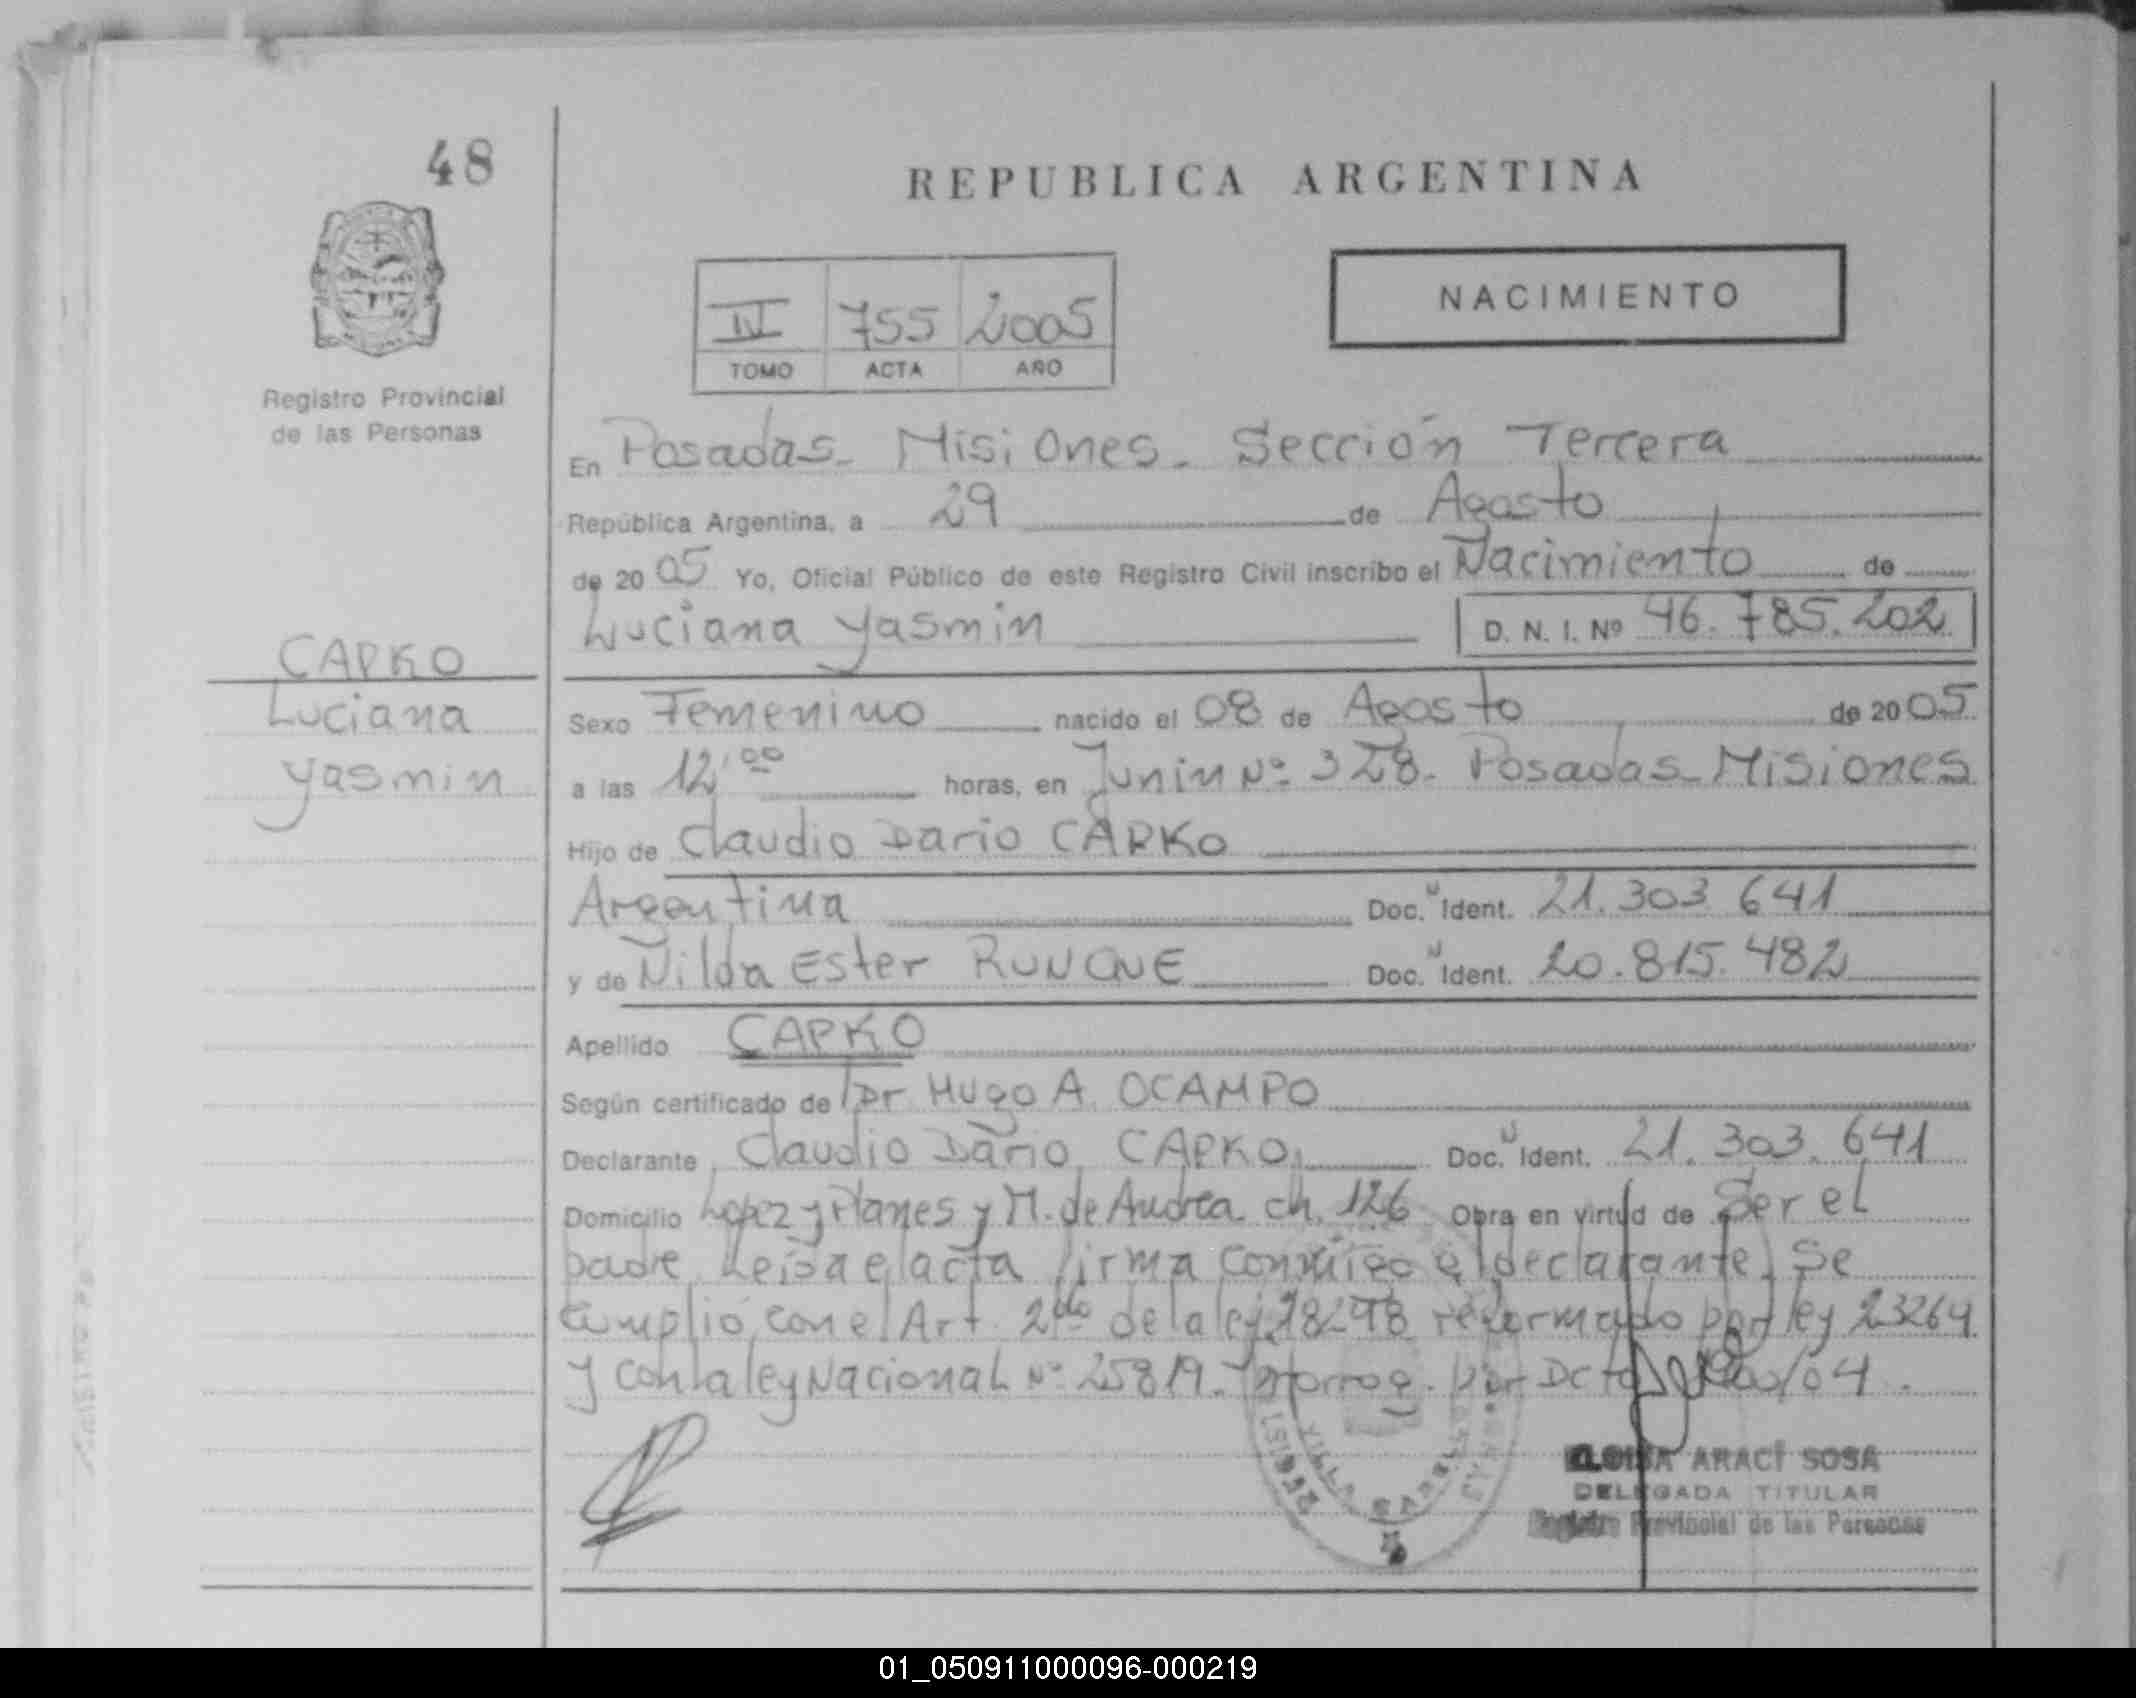 48
REPUBLICA ARGENTINA
NACIMIENTO
IV 755 2005
TOMO ACTA AÑO
Registro Provincial
de las Personas
En Posadas - Misiones - Sección Tercera
República Argentina, a 29 de Agosto
de 2005 Yo, Oficial Público de este Registro Civil inscribo el Nacimiento de
Luciana Yasmin D. N. I. Nº 46.785.202
CAPKO
Luciana
Yasmin
Sexo Femenino nacido el 08 de Agosto de 2005
a las 12,00 horas, en Junin Nº 328 - Posadas - Misiones
Hijo de Claudio Dario CAPKO
Argentina Doc. Ident. 21.303.641
y de Nilda Ester Doc. Ident. 20.815.482
Apellido CAPKO
Según certificado de Dr Hugo A. OCAMPO
Declarante Claudio Dario CAPKO Doc. Ident. 21.303.641
Domicilio Lopez y Planes y M. de Andrea ch. 126 Obra en virtud de Ser el
padre. Leida el acta firma conmigo el declarante. Se
cumplió con el Art. 2do de la ley 18248 reformado por ley 23264
y con la ley Nacional Nº 25819. Prorrog. por Dcto /04.
VILLA CABELLO
ARACI SOSA
DELEGADA TITULAR
Registro Provincial de las Personas
01_050911000096-000219